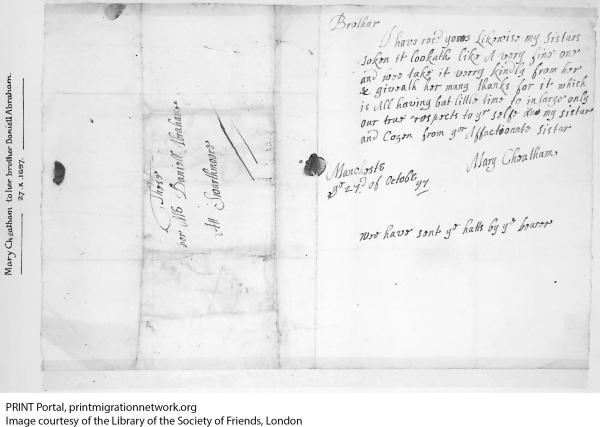 Mary Cheatham to her brother Daniell Abraham.
27. x. 1697.
Brothar
I have recd yours Likewise my Sistars
token it lookath like A very fine one
and wee take it verry kindly from her
& giveath her many thanks for it which
is All having but little time to inlarge only
our true respects to yr selfe & my sistar
and Cozen from yor Affactionate Sistar
Mary Cheatham
Manchestr
ye 27d of Octobr 97
wee have sent ye hatts by ye bearer
These
For Mr Daniell Abraham
Att Swarthmoore
PRINT Portal, printmigrationnetwork.org
Image courtesy of the Library of the Society of Friends, London